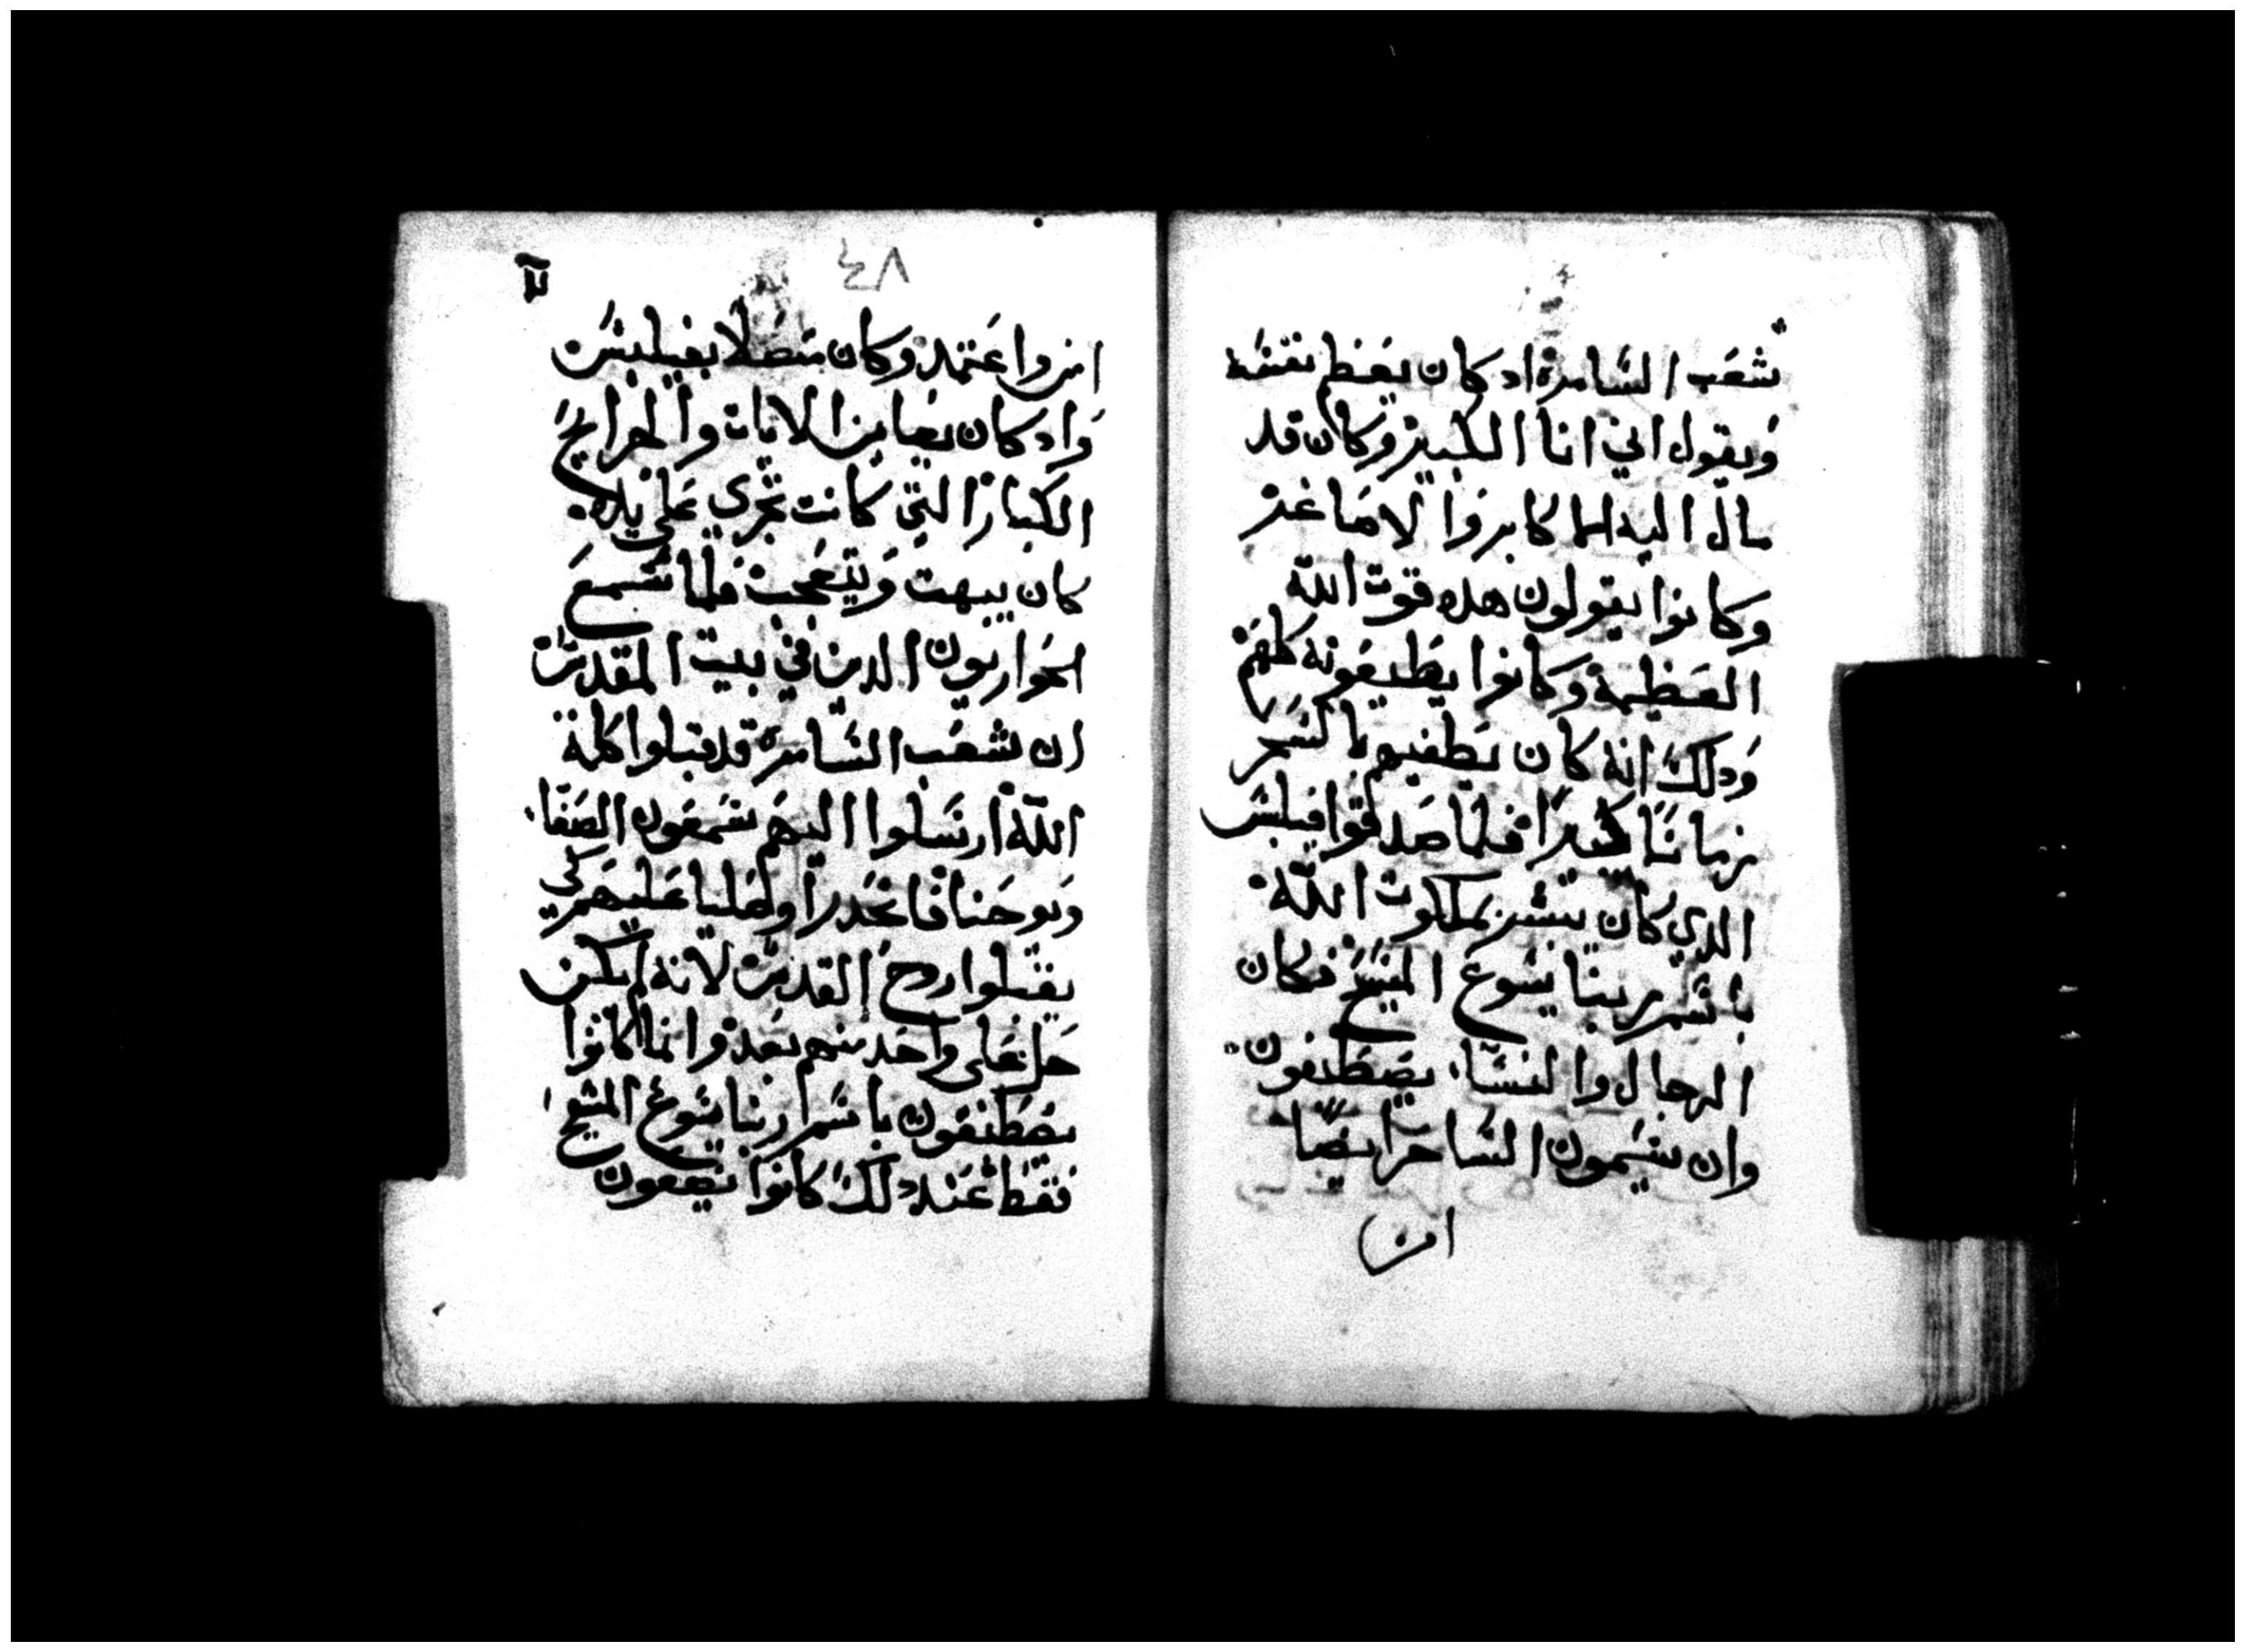 شعب السامرة اد كان يعظم نفسه
ويقول اني انا الكبير وكان قد
مال اليه الما كابروا لاصاغر
وكانوا يقولون هده قوت الله
العظيمة وكانوا يطيعونه كلهم
ودلك انه كان يطغيهم بالسحر
زمانًا كثيرًا فلما صدقوا فيلبس
الدي كان يبشر بملكوت الله
باسم ربنا يسوع المسيح فكان
الرجال والنسا يصطبغون
وان سيمون الساحر ايضًا
امن
٤٨
امن واعتمد وكان متصلا بفيلبس
واد كان يعاين الايات والجرايح
الكبار التي كانت تجري على يده
كان يبهت ويتعجب فلما سمع
الحواريون الدين في بيت المقدس
ان شعب السامرة قد قبلوا كلمة
الله ارسلوا اليهم شمعون الصفا
ويوحنا فانحدرا وصليا عليهم كي
يقبلوا روح القدس لانه لم يكن
حل على واحد منهم بعد وانما كانوا
يصطبغون باسم ربنا يسوع المسيح
فقط عند دلك كانوا يضعون